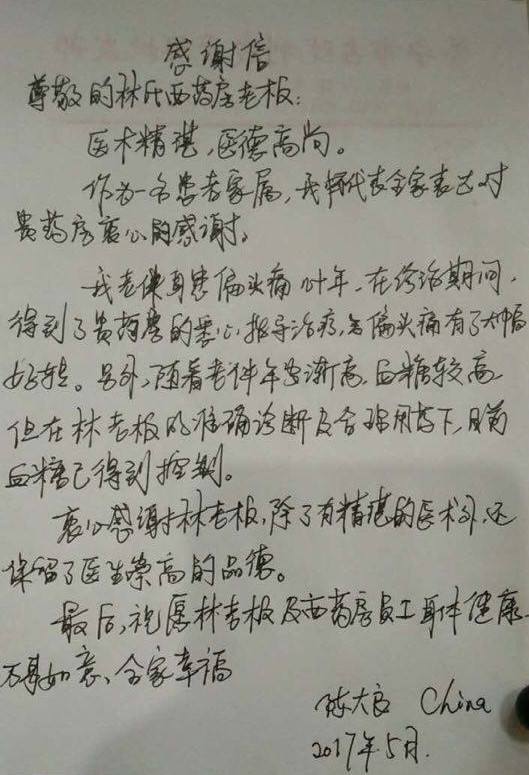 感谢信
尊敬的林氏西药房老板：
医术精堪，医德高尚。
作为一名患者家属，我代表全家表达对
贵药房衷心的感谢。
我老伴身患偏头痛廿年，在诊治期间，
得到了贵药房的悉心指导治疗，偏头痛有了大幅
好转。另外，随着老伴年岁渐高，血糖较高
但在林老板的准确诊断及合理用药下，目前
血糖已得到控制。
衷心感谢林老板，除了有精堪的医术外，还
保留了医生崇高的品德。
最后，祝愿林老板及西药房员工身体健康
万事如意、全家幸福
陈大良 China
2017年5月.